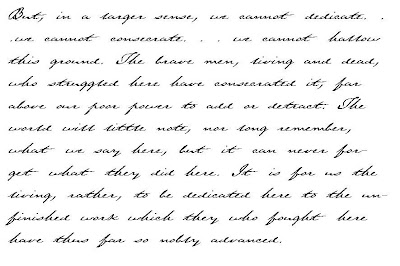 But, in a larger sense, we cannot dedicate. .
.we cannot consecrate. . . we cannot hallow
this ground. The brave men, living and dead,
who struggled here have consecrated it, far
above our poor power to add or detract. The
world will little note, nor long remember,
what we say here, but it can never for-
get what they did here. It is for us the
living, rather, to be dedicated here to the un-
finished work which they who fought here
have thus far so nobly advanced.